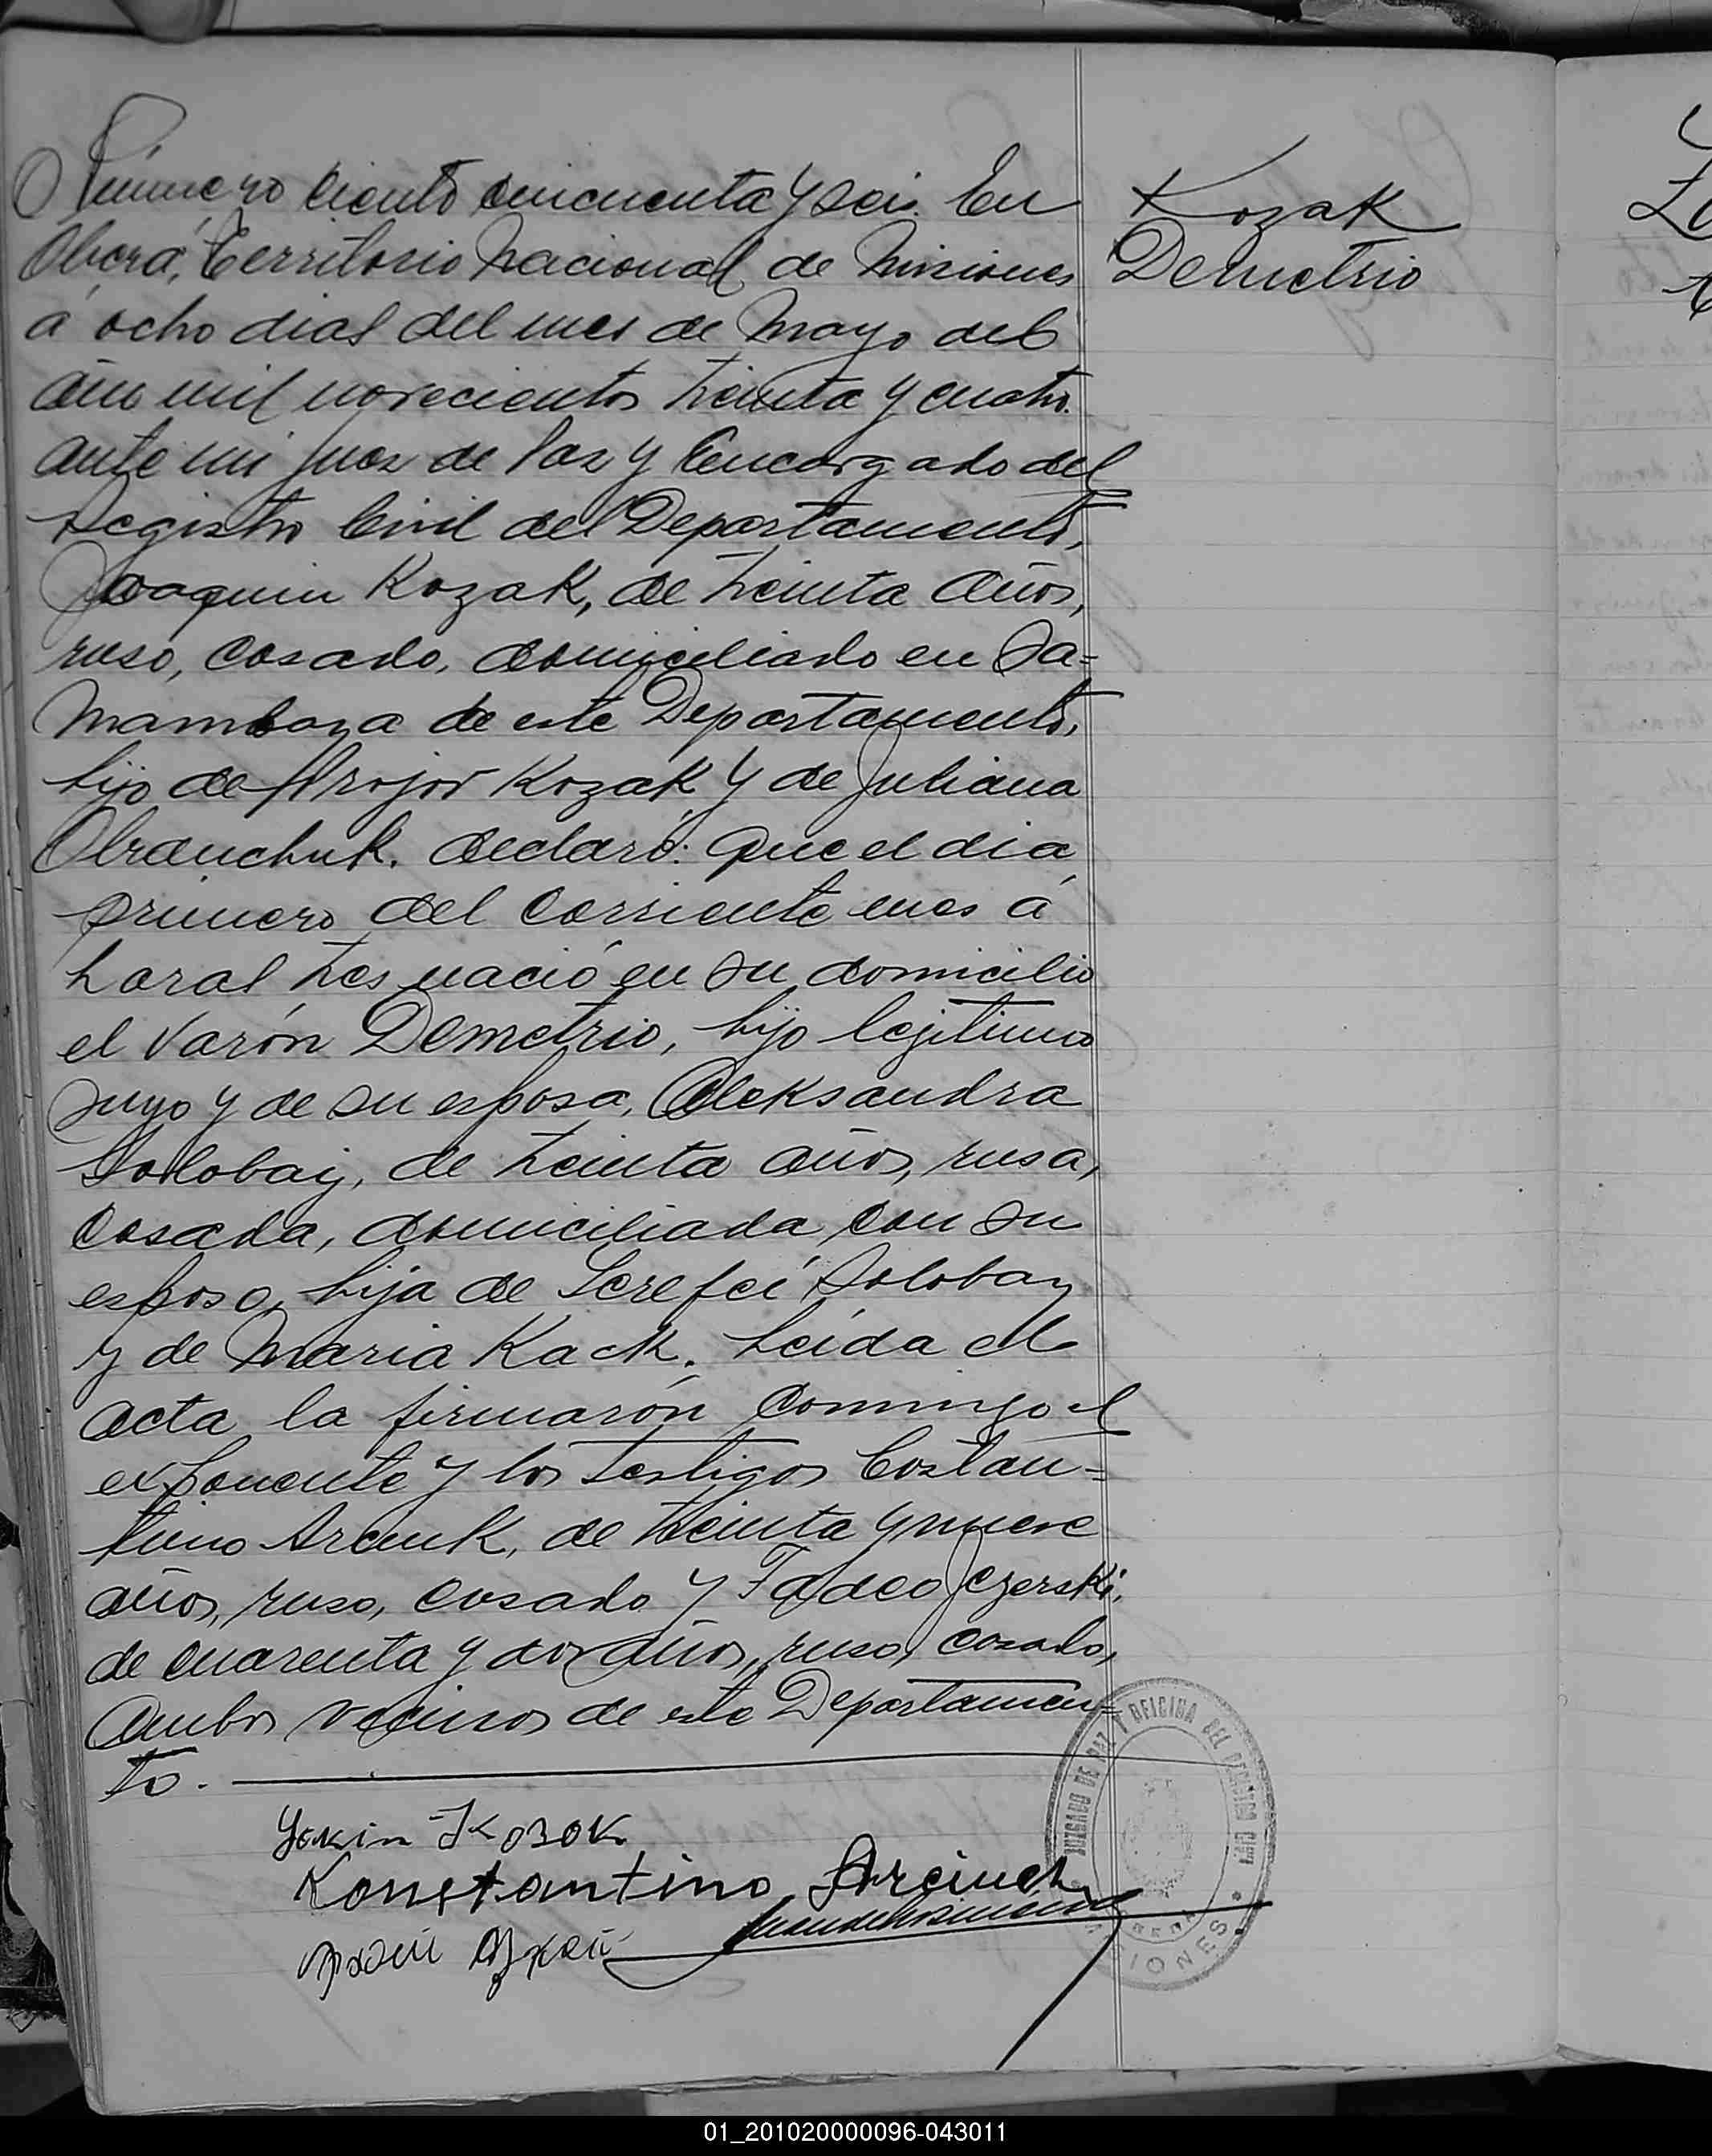 Número ciento cincuenta y seis. En
Oberá, Territorio Nacional de Misiones
á ocho dias del mes de Mayo del
año mil novecientos treinta y cuatro.
ante mi Juez de Paz y Encargado del
Registro Civil del Departamento,
Joaquin Kozak, de treinta años,
ruso, casado, domiciliado en Ya=
mambaza de este Departamento,
hijo de Kozak y de Juliana
declaró: Que el dia
primero del corriente mes á
horas tres nació en su domicilio
el varón Demetrio, hijo legitimo
suyo y de su esposa, Aleksandra
Solobaij, de treinta años, rusa,
casada, domiciliada con su
esposo, hija de Solobay
y de Maria Kack. Leida el
acta la firmarón conmigo el
exponente y los testigos Costan=
tino Arcuk, de treinta y nueve
años, ruso, casado y Tadeo
de cuarenta y dos años, ruso, casado,
ambos vecinos de este Departamen=
to.
Kozak
Demetrio
Якин Козак
Konstantino
JUZGADO DE PAZ Y OFICINA DEL REGISTRO CIVIL
OBERÁ
MISIONES
01_201020000096-043011